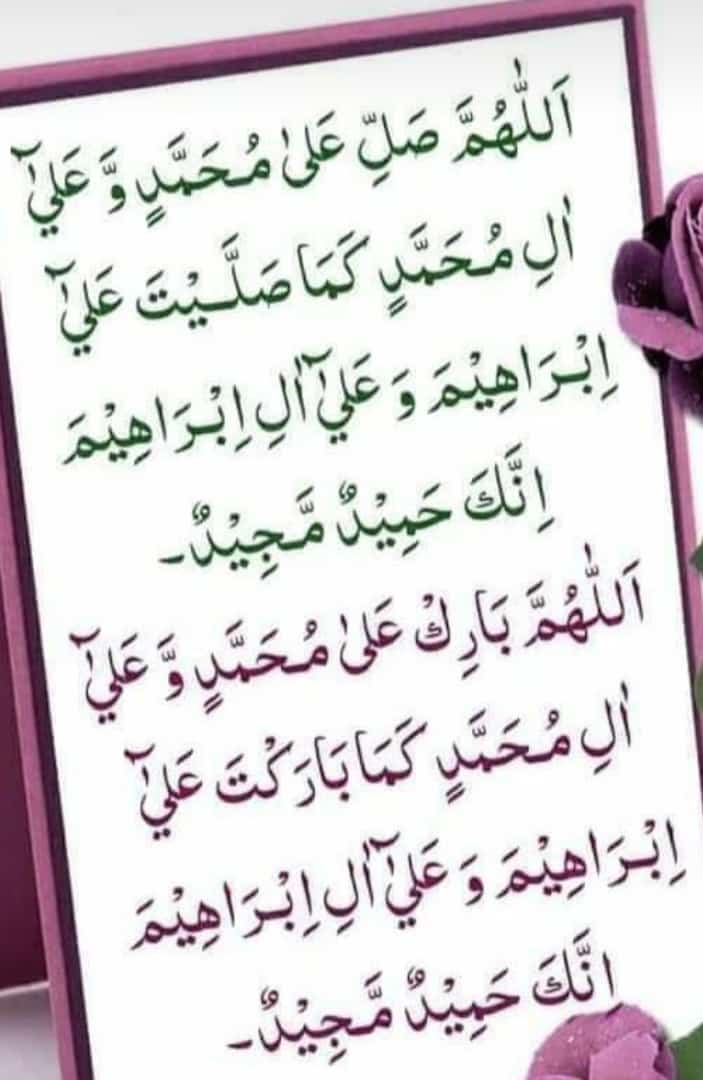 اَللّٰهُمَّ صَلِّ عَلٰى مُحَمَّدٍ وَّ عَلٰٓي
اٰلِ مُحَمَّدٍ كَمَا صَلَّيْتَ عَلٰٓي
اِبْرَاهِيْمَ وَ عَلٰٓي اٰلِ اِبْرَاهِيْمَ
اِنَّكَ حَمِيْدٌ مَّجِيْدٌ۔
اَللّٰهُمَّ بَارِكْ عَلٰى مُحَمَّدٍ وَّ عَلٰٓي
اٰلِ مُحَمَّدٍ كَمَا بَارَكْتَ عَلٰٓي
اِبْرَاهِيْمَ وَ عَلٰٓي اٰلِ اِبْرَاهِيْمَ
انَّكَ حَمِيْدٌ مَّجِيْدٌ۔